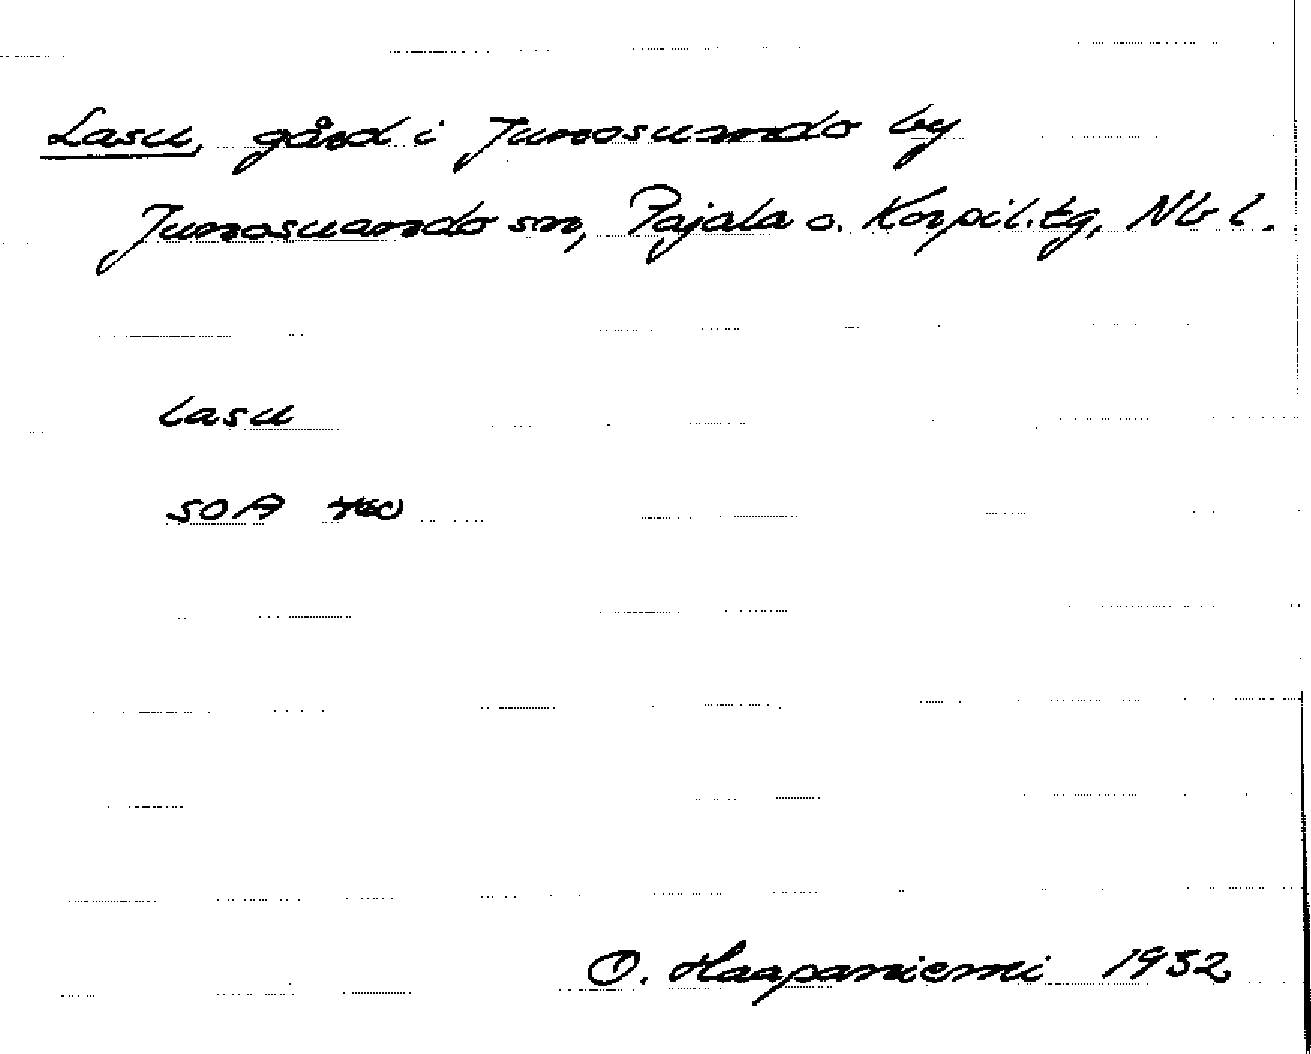 Lasu, gård i Junosuando by
Junosuando sn, Pajala o. Korpil. tg, Nb l.
lasu
SOA
O. Haapaniemi 1932